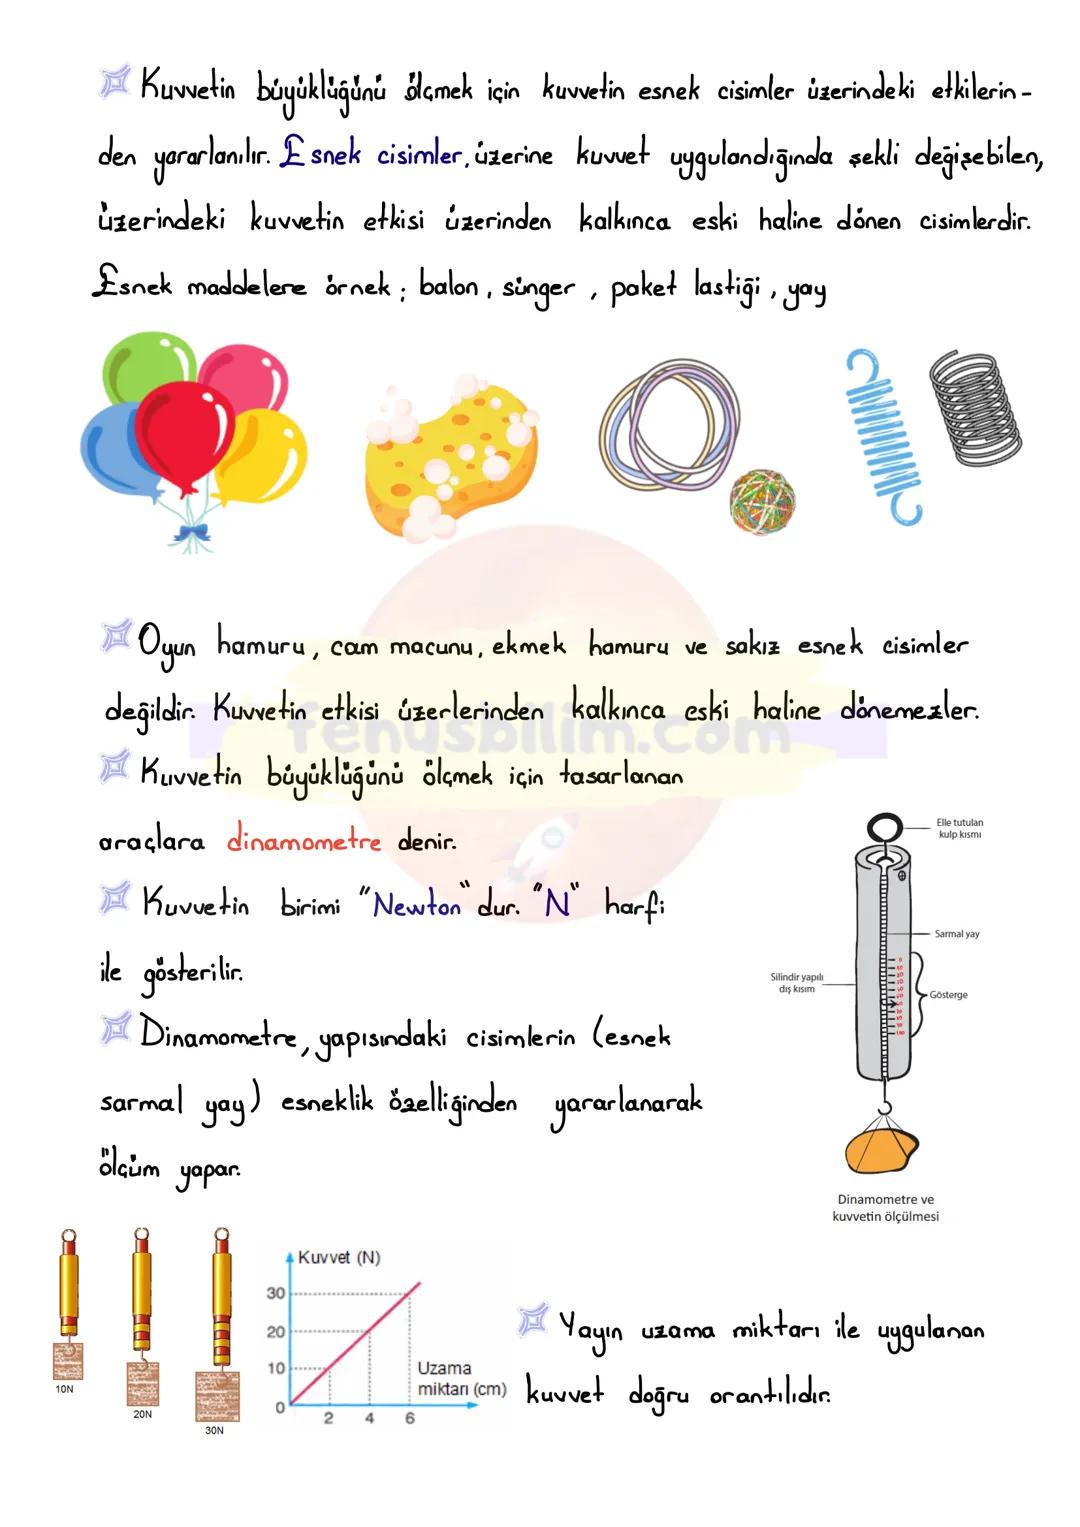 Kuvvetin büyüklüğünü ölçmek için kuvvetin esnek cisimler üzerindeki etkilerin-
den yararlanılır. Esnek cisimler, üzerine kuvvet uygulandığında şekli değişebilen,
üzerindeki kuvvetin etkisi üzerinden kalkınca eski haline dönen cisimlerdir.
Esnek maddelere örnek; balon, sünger, paket lastiği, yay
Oyun hamuru, cam macunu, ekmek hamuru ve sakız esnek cisimler
değildir. Kuvvetin etkisi üzerlerinden kalkınca eski haline dönemezler.
fenusbilim.com
Kuvvetin büyüklüğünü ölçmek için tasarlanan
araçlara dinamometre denir.
Kuvvetin birimi "Newton" dur. "N" harfi
ile gösterilir.
Dinamometre, yapısındaki cisimlerin (esnek
sarmal yay) esneklik özelliğinden yararlanarak
ölçüm yapar.
Elle tutulan
kulp kısmı
Sarmal yay
Silindir yapılı
dış kısım
Gösterge
Dinamometre ve
kuvvetin ölçülmesi
10N
20N
30N
Kuvvet (N)
30
20
10
0
2 4 6
Uzama
miktarı (cm)
Yayın uzama miktarı ile uygulanan
kuvvet doğru orantılıdır.